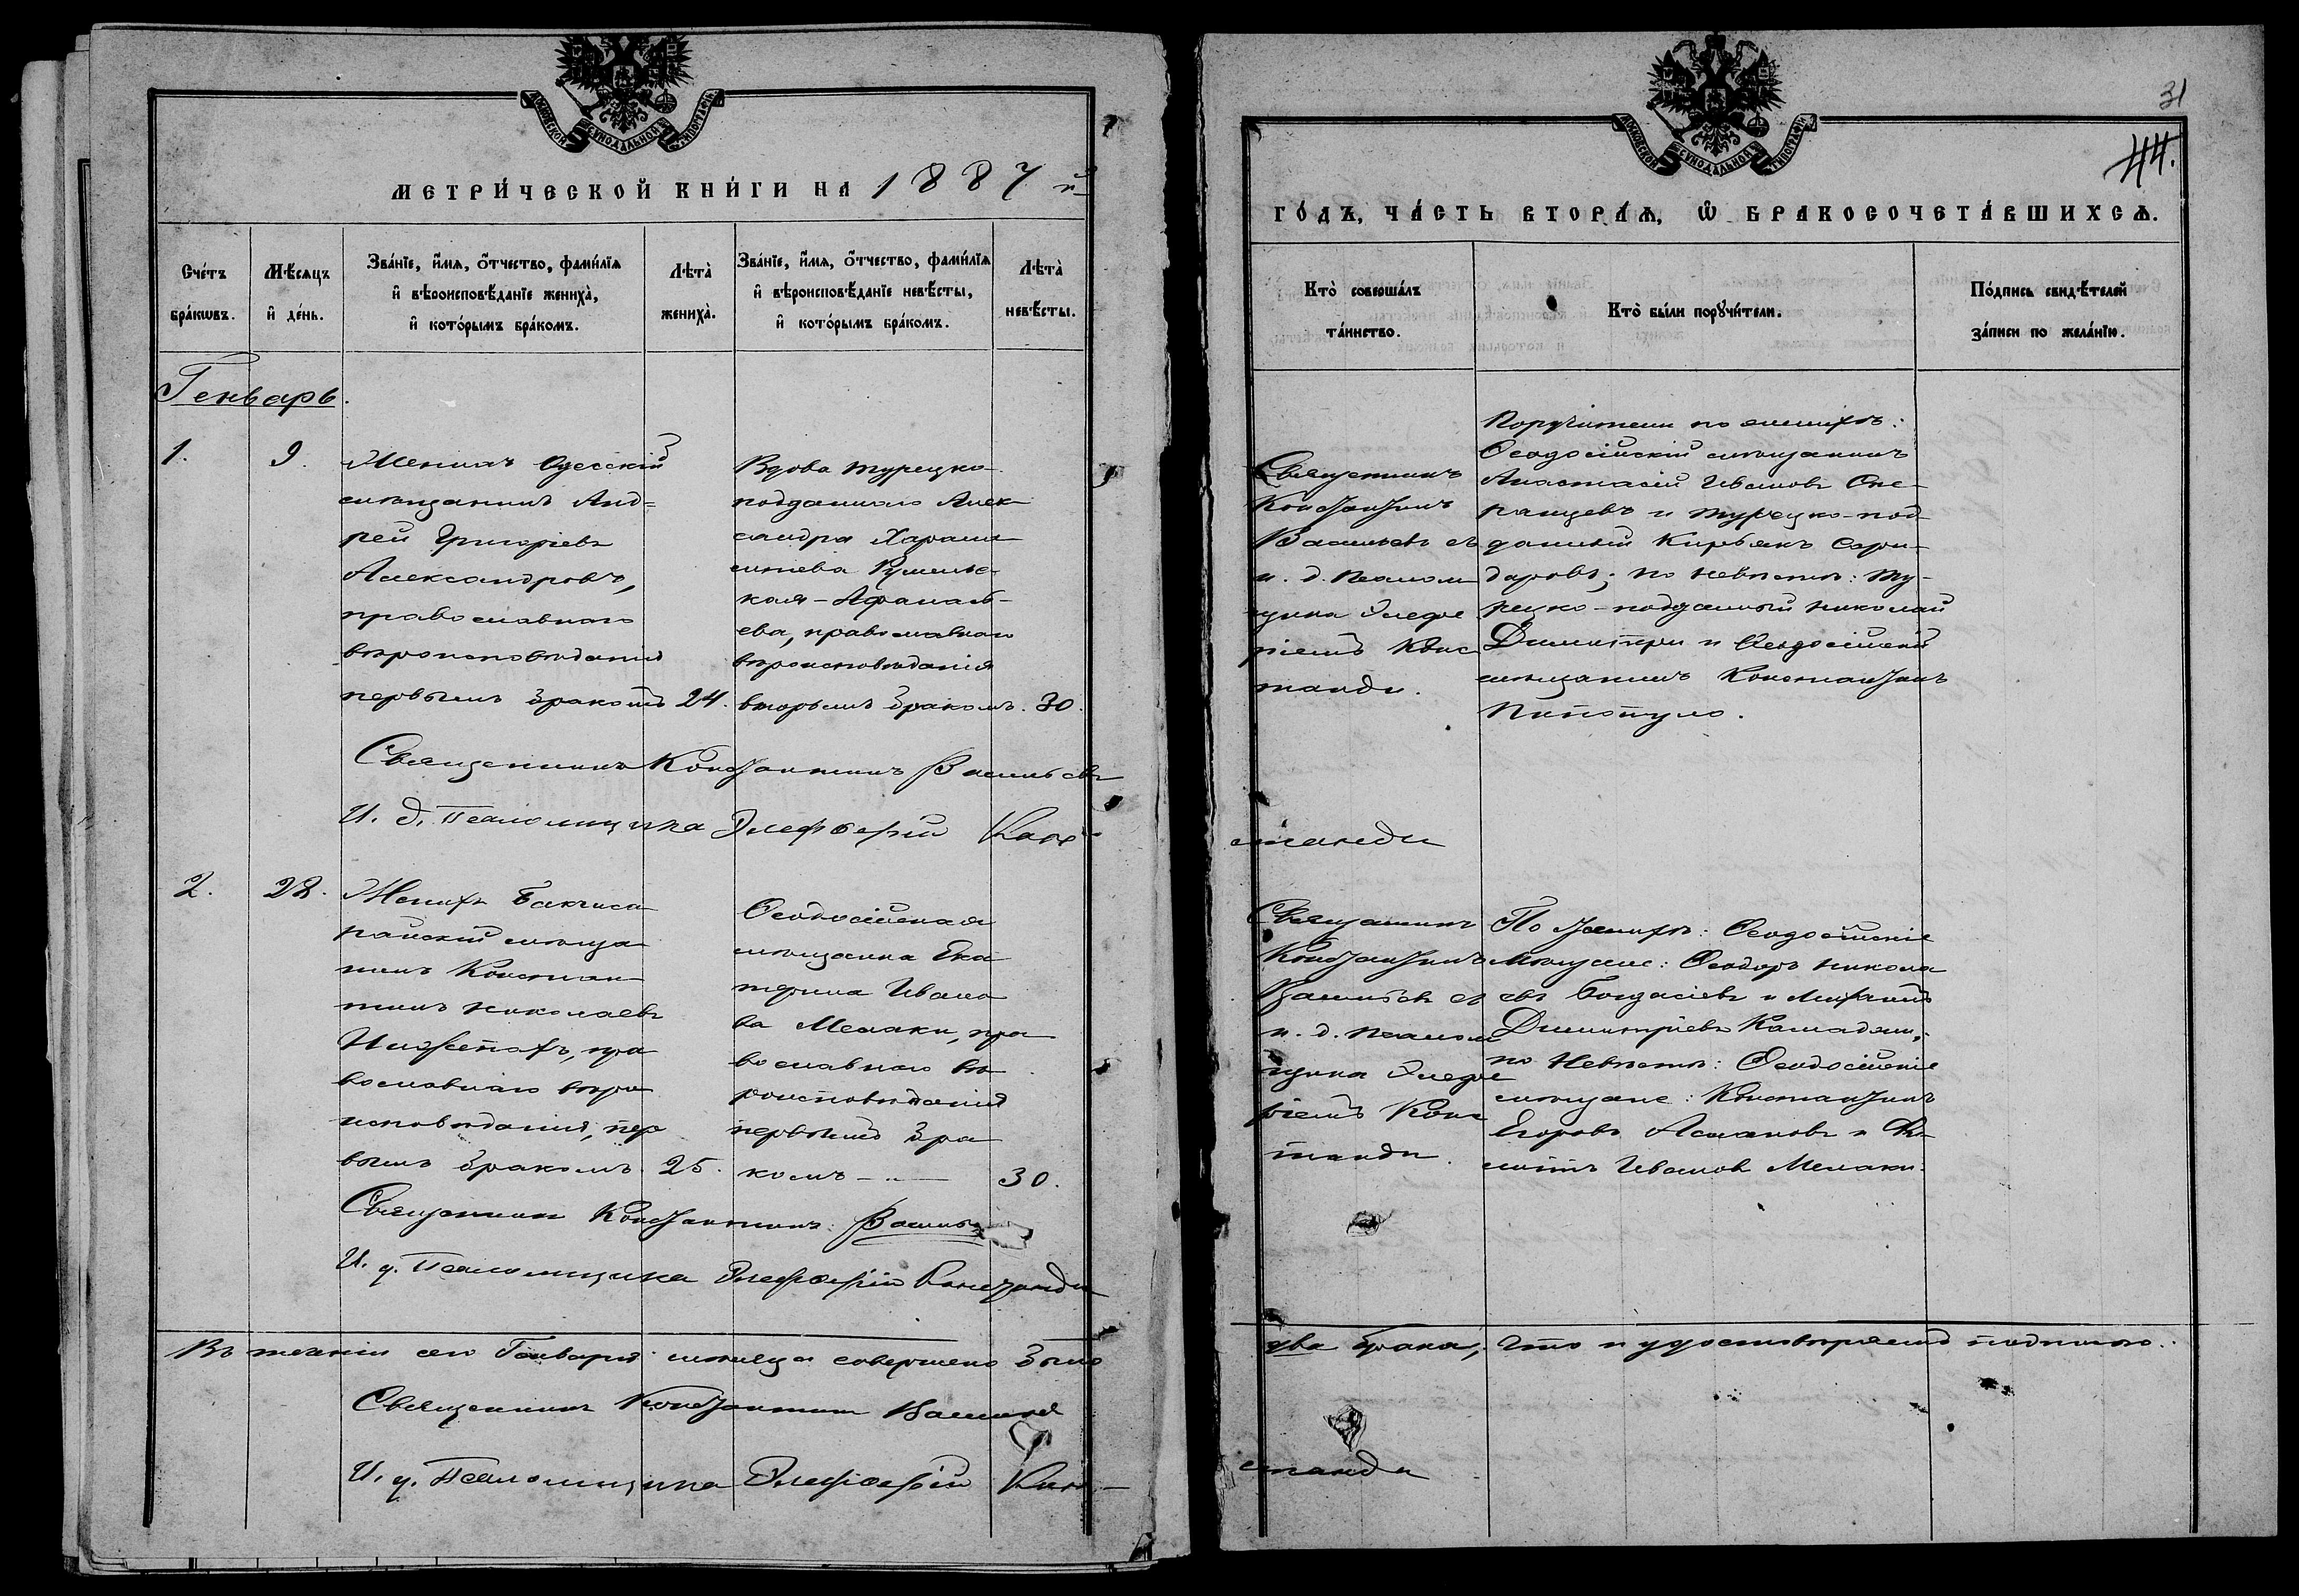 МОСКОВСКОЙ СУНОДАЛЬНОЙ ТИПОГРАФІИ
МЕТРИ́ЧЕСКОЙ КНИ́ГИ НА 1887 й
Сче́тъ бра́кѡвъ.
Мѣ́сяцъ и҆ де́нь.
Зва́нїе, и҆́мѧ, ѻ҆́тчество, фами́лїѧ
и҆ вѣроисповѣ́данїе жениха̀,
и҆ кото́рымъ бра́комъ.
Лѣта̀ жениха̀.
Зва́нїе, и҆́мѧ, ѻ҆́тчество, фами́лїѧ
и҆ вѣроисповѣ́данїе невѣ́сты,
и҆ кото́рымъ бра́комъ.
Лѣта̀ невѣ́сты.
Генварь.
1.
9.
Женихъ Одесскій
мѣщанинъ Анд=
рей Григоріевъ
Александровъ,
православнаго
вѣроисповѣданія
первымъ бракомъ
24.
Вдова турецко-
подданнаго Алек
сандра
православнаго
вѣроисповѣданія
вторымъ бракомъ.
30.
Священникъ Константинъ Васильевъ
И. д. Псаломщика Елефферій Конс
2.
28.
Женихъ Бахчиса
райскій мѣща
нинъ Констан
тинъ Николаевъ
пра
вославнаго вѣро
исповѣданія, пер
вымъ бракомъ
25.
Ѳеодосійская
мѣщанка Ека
терина Ивано
ва Мелаки, пра
вославнаго вѣ
роисповѣданія
первымъ бра
комъ — " —
30.
Священникъ Константинъ
И. д. Псаломщика Елефферій Констанди
Въ теченіи сего Генваря мѣсяца совершено было
Священникъ Константинъ Васильевъ
И. д. Псаломщика Елефферій Кон-
31
44.
МОСКОВСКОЙ СУНОДАЛЬНОЙ ТИПОГРАФІИ
ГО́ДЪ, ЧА́СТЬ ВТОРА́Ѧ, Ѽ БРАКОСОЧЕТА́ВШИХСѦ.
Кто̀ соверша́лъ та́инство.
Кто̀ бы́ли порꙋчи́тели.
По́дпись свидѣ́телей за́писи по жела́нїю.
Священникъ
Константинъ
Васильевъ съ
и. д. псалом
щика Елефе
ріемъ Конс
танди.
Поручители по женихѣ:
Ѳеодосійскій мѣщанинъ
Анастасій Ивановъ Спе-
ранцевъ и турецко-под
данный Кирьякъ Сари-
даровъ; по невѣстѣ: ту-
рецко-подданный Николай
Димитри и Ѳеодосійскій
мѣщанинъ Константинъ
станди
Священникъ
Константинъ
Васильевъ съ
и. д. псалом
щика Елефе
ріемъ Конс
танди.
По женихѣ: Ѳеодосійскіе
мѣщане: Ѳеодоръ Никола
евъ и Михаилъ
Димитріевъ
по невѣстѣ: Ѳеодосійскіе
мѣщане: Константинъ
Егоровъ Аслановъ и
Ивановъ Мелаки.
два брака, что и удостовѣряемъ подписью.
станди